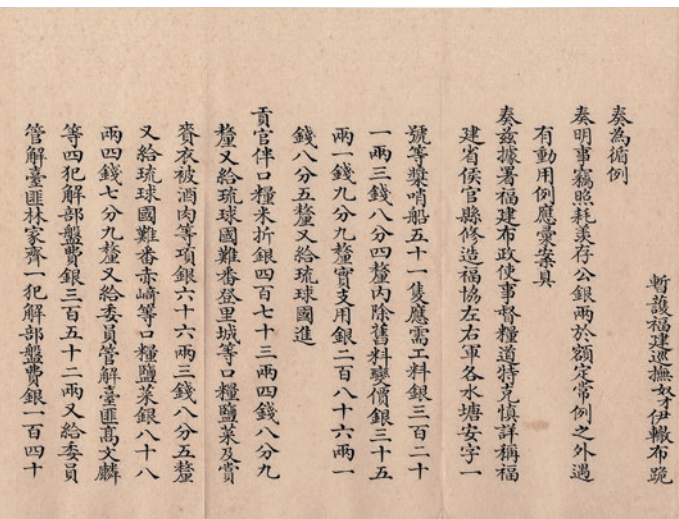 暫護福建巡撫奴才伊轍布跪
奏為循例
奏明事竊照耗羡存公銀兩於額定常例之外遇
有動用例應彙案具
奏茲據署福建布政使事督糧道特克慎詳稱福
建省侯官縣修造福協左右軍各水塘安字一
號等槳哨船五十一隻應需工料銀三百二十
一兩三錢八分四釐內除舊料變價銀三十五
兩一錢九分九釐實支用銀二百八十六兩一
錢八分五釐又給琉球國進
貢官伴口糧米折銀四百七十三兩四錢八分九
釐又給琉球國難番登里城等口糧鹽菜及賞
賚衣被酒肉等項銀六十六兩三錢八分五釐
又給琉球國難番赤﨑等口糧鹽菜銀八十八
兩四錢七分九釐又給委員管解臺匪高文麟
等四犯解部盤費銀三百五十二兩又給委員
管解臺匪林家齊一犯解部盤費銀一百四十